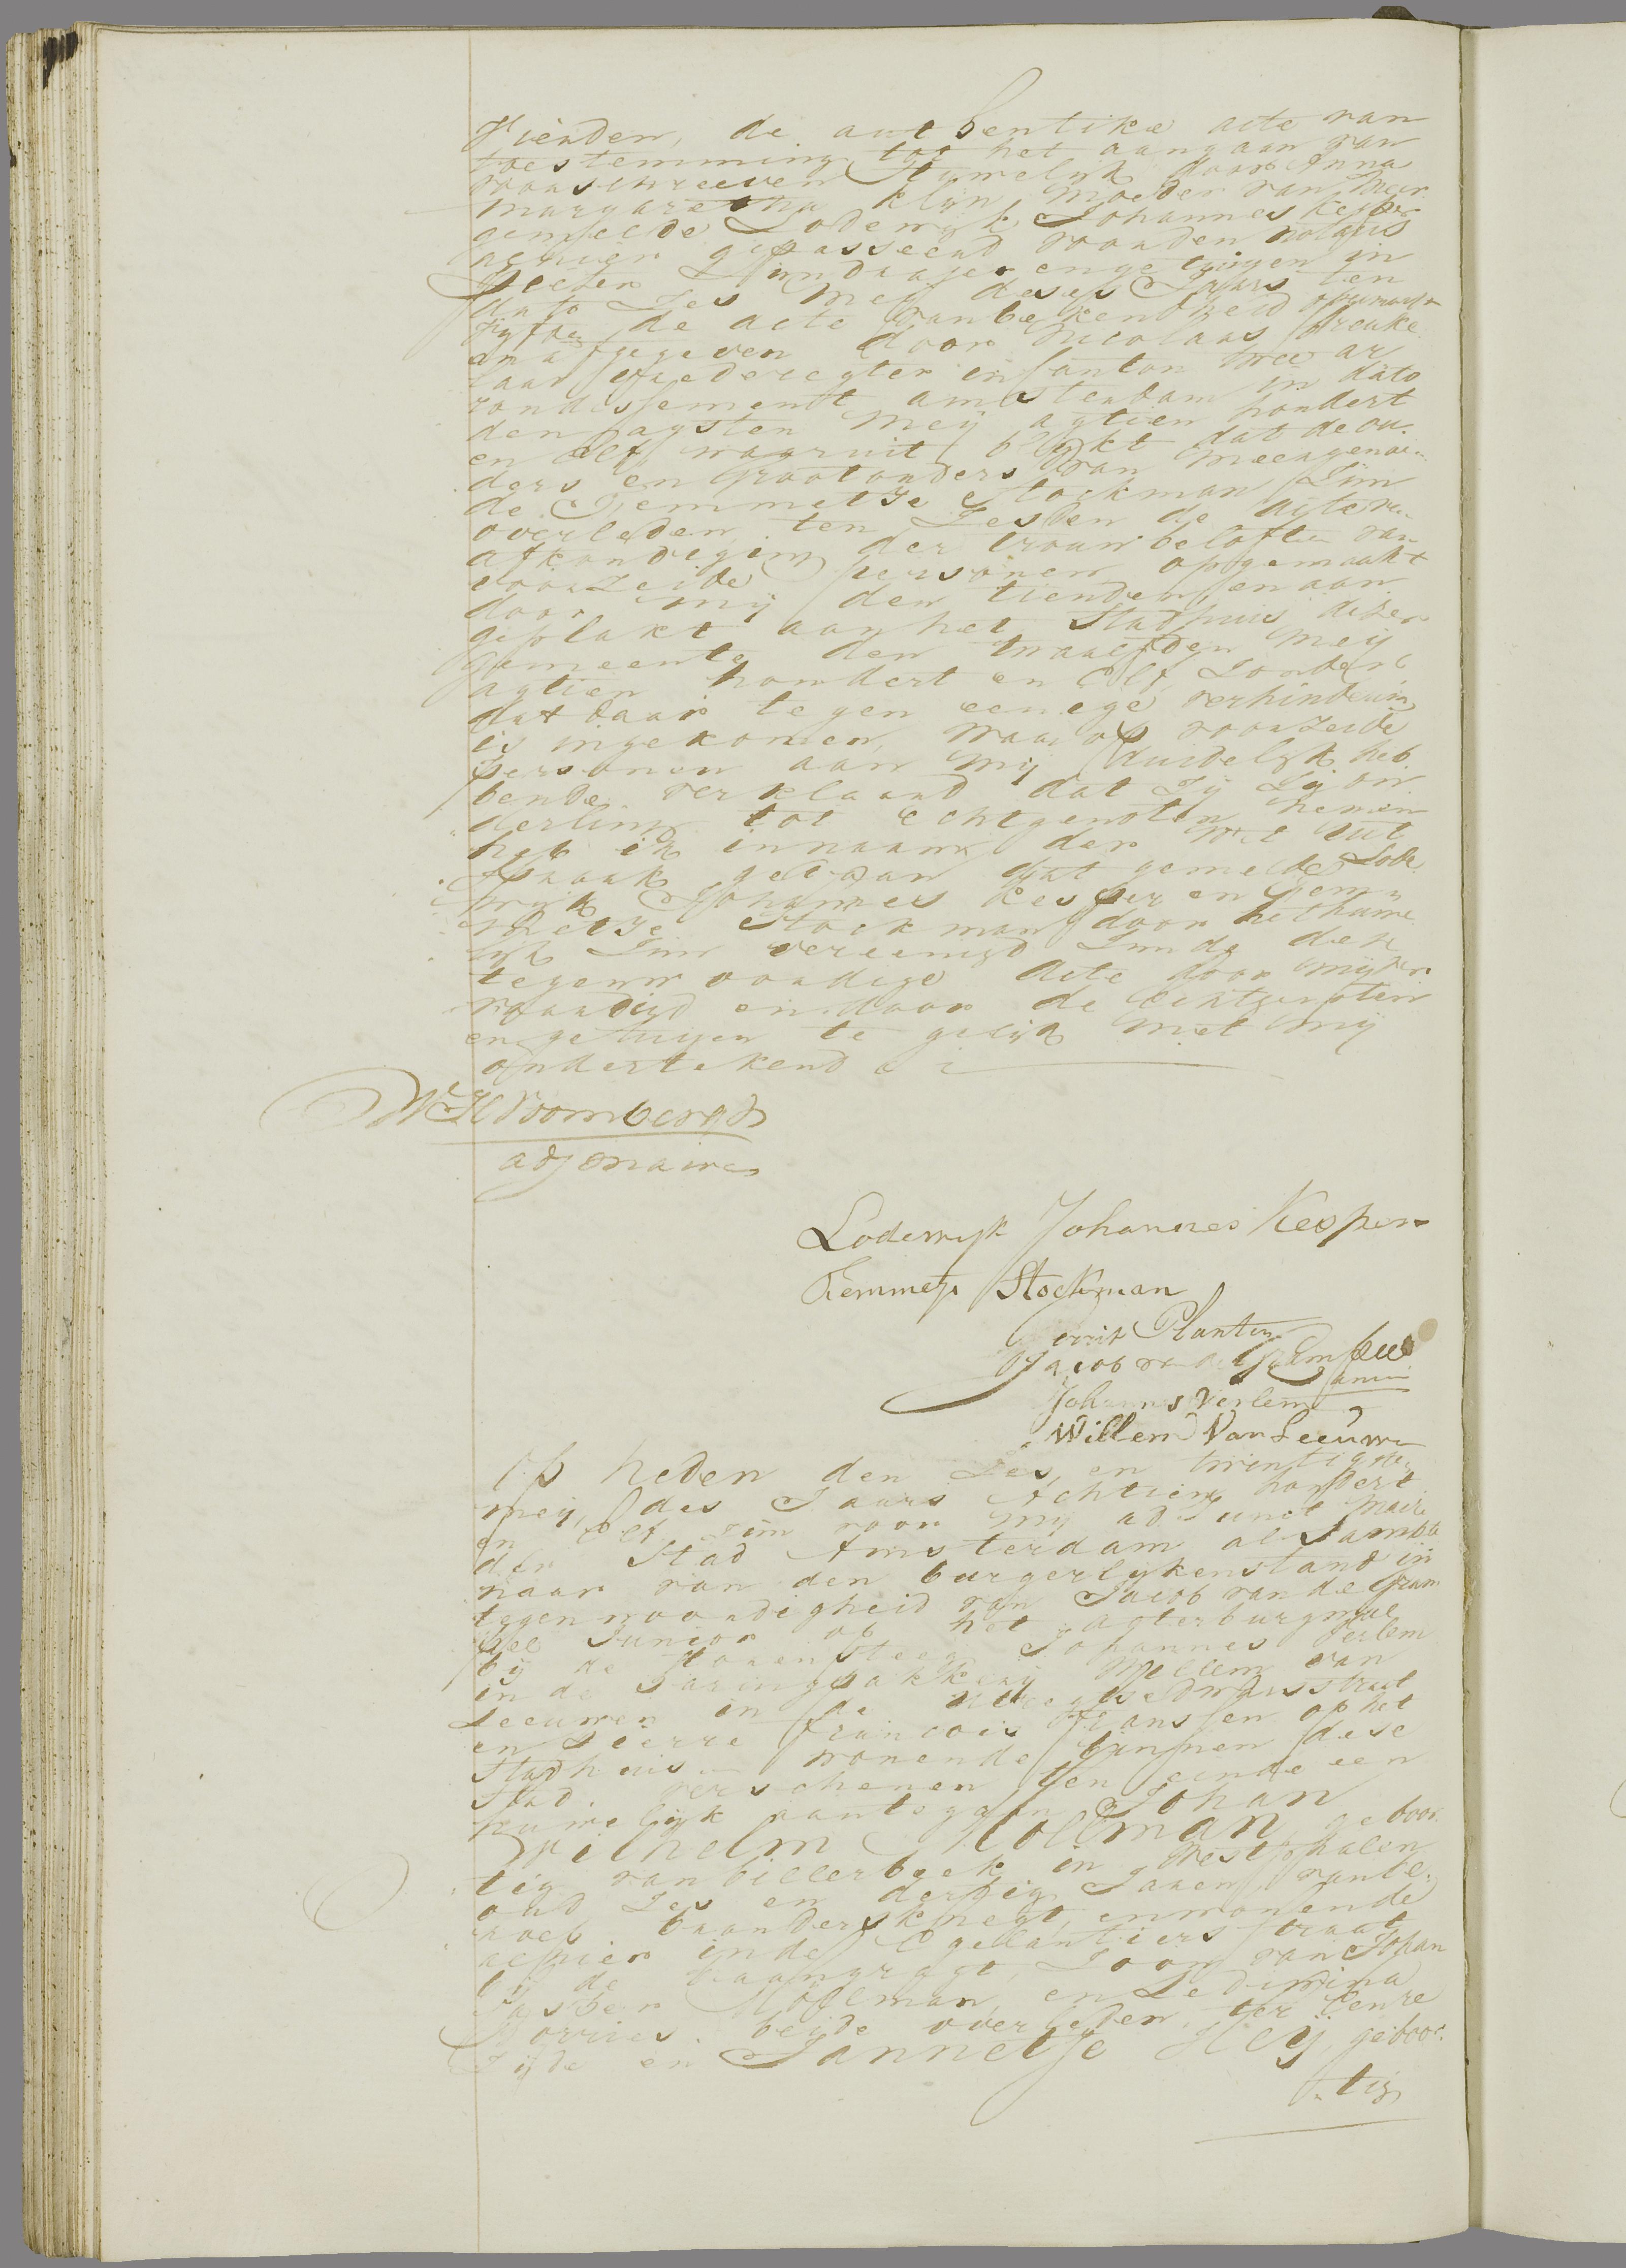 Vierden, de authentike acte van
toestemming tot het aangaan van
voorschreeven Huwelijk door Anna
Margaretha Klijn, moeder van meer
gemelde Lodewijk Johannes Kesper
alhier gepasseerd voor den notaris
Pieter en getuigen in
dato Zes Meij deses Jaars ten
vyfden de acte van bekendheid opgemaakt
en afgegeven door Nicolaas
laar Vrederegter in Canton twee ar
rondissement Amsterdam in dato
den agsten Meij agtien hondert
en elf waaruit blykt dat de ou
ders en Grootouders van meergenoem
de Gemmetje Stockman Zijn
overleden, ten Zesden de acte van
afkondiging der trouwbeloften van
voorzeide persoonen opgemaakt
door mij den tienden en aan
geplakt aan het Stadhuis dezer
gemeente den twaalfden Meij
agtien hondert en Elf Zonder
dat daar tegen eenige verhindering
is ingekomen, waar op voorzeide
personen aan mij duidelijk heb
bende verklaard dat Zij Zig on
derling tot Echtgenoten nemen
heb ik in naam der Wet uit
spraak gedaan dat gemelde Lode
wijk Johannes Kesper en Gem
metje Stockman door het huwe
lijk Zijn vereenigd Zijnde den
tegenwoordige Acte door mij ver
vaardigd en door de Echtgenoten
en getuigen te gelijk met mij
ondertekend
W H Voombergh
adj Maire
Lodewijk Johannes Kesper
Gemmetje Stockman
Gerrit Planten
Jacob van de
Junior
Johannes Verlem
Willem Van Leeuwen
Op heden den Zes en twintigsten
Meij, des Jaars Achtien hondert
en Elf Zijn voor mij adjunct Maire
der Stad Amsterdam als ambte
naar van den burgerlijkenstand in
tegenwoordigheid van Jacob van de
pee Junior op het agterburgwal
bij de Steeg Johannes Verlem
in de Willem van
Leeuwen in de dwarsstraat
en Pierre Francois Franssen op het
Stadhuis wonende binnen dese
Stad verschenen, ten einde een
huwelijk aantegaan Johan
Wilhelm Holtman, geboor
tig van billerbeek in Westphalen
oud Zes en dertig Jaaren, van be
roep baanderskneegt, en wonende
alhier in de Egelantiersstraat
bij de baangragt, Zoon van Johan
Jasper Holtman, en Ledimina
Borries. beijde overleden ter eenre
Zijde en Jannetje Heij, geboor
tig